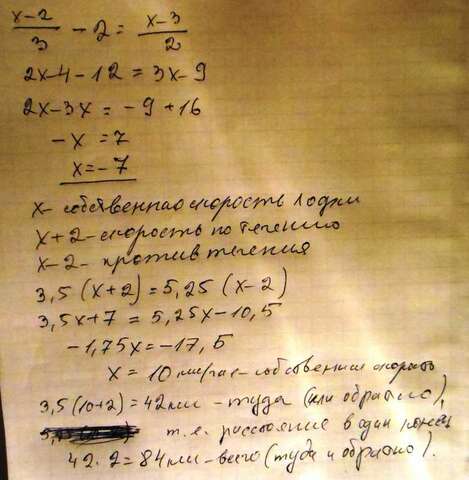 x-2/3 - 2 = x-3/2
2x-4-12 = 3x-9
2x-3x = -9+16
-x = 7
x = -7
x - собственная скорость лодки
x+2 - скорость по течению
x-2 - против течения
3,5 (x+2) = 5,25 (x-2)
3,5x+7 = 5,25x-10,5
-1,75x = -17,5
x = 10 км/час - собственная скорость
3,5(10+2) = 42км - туда (или обратно),
т.е. расстояние в один конец
42·2 = 84км - всего (туда и обратно).